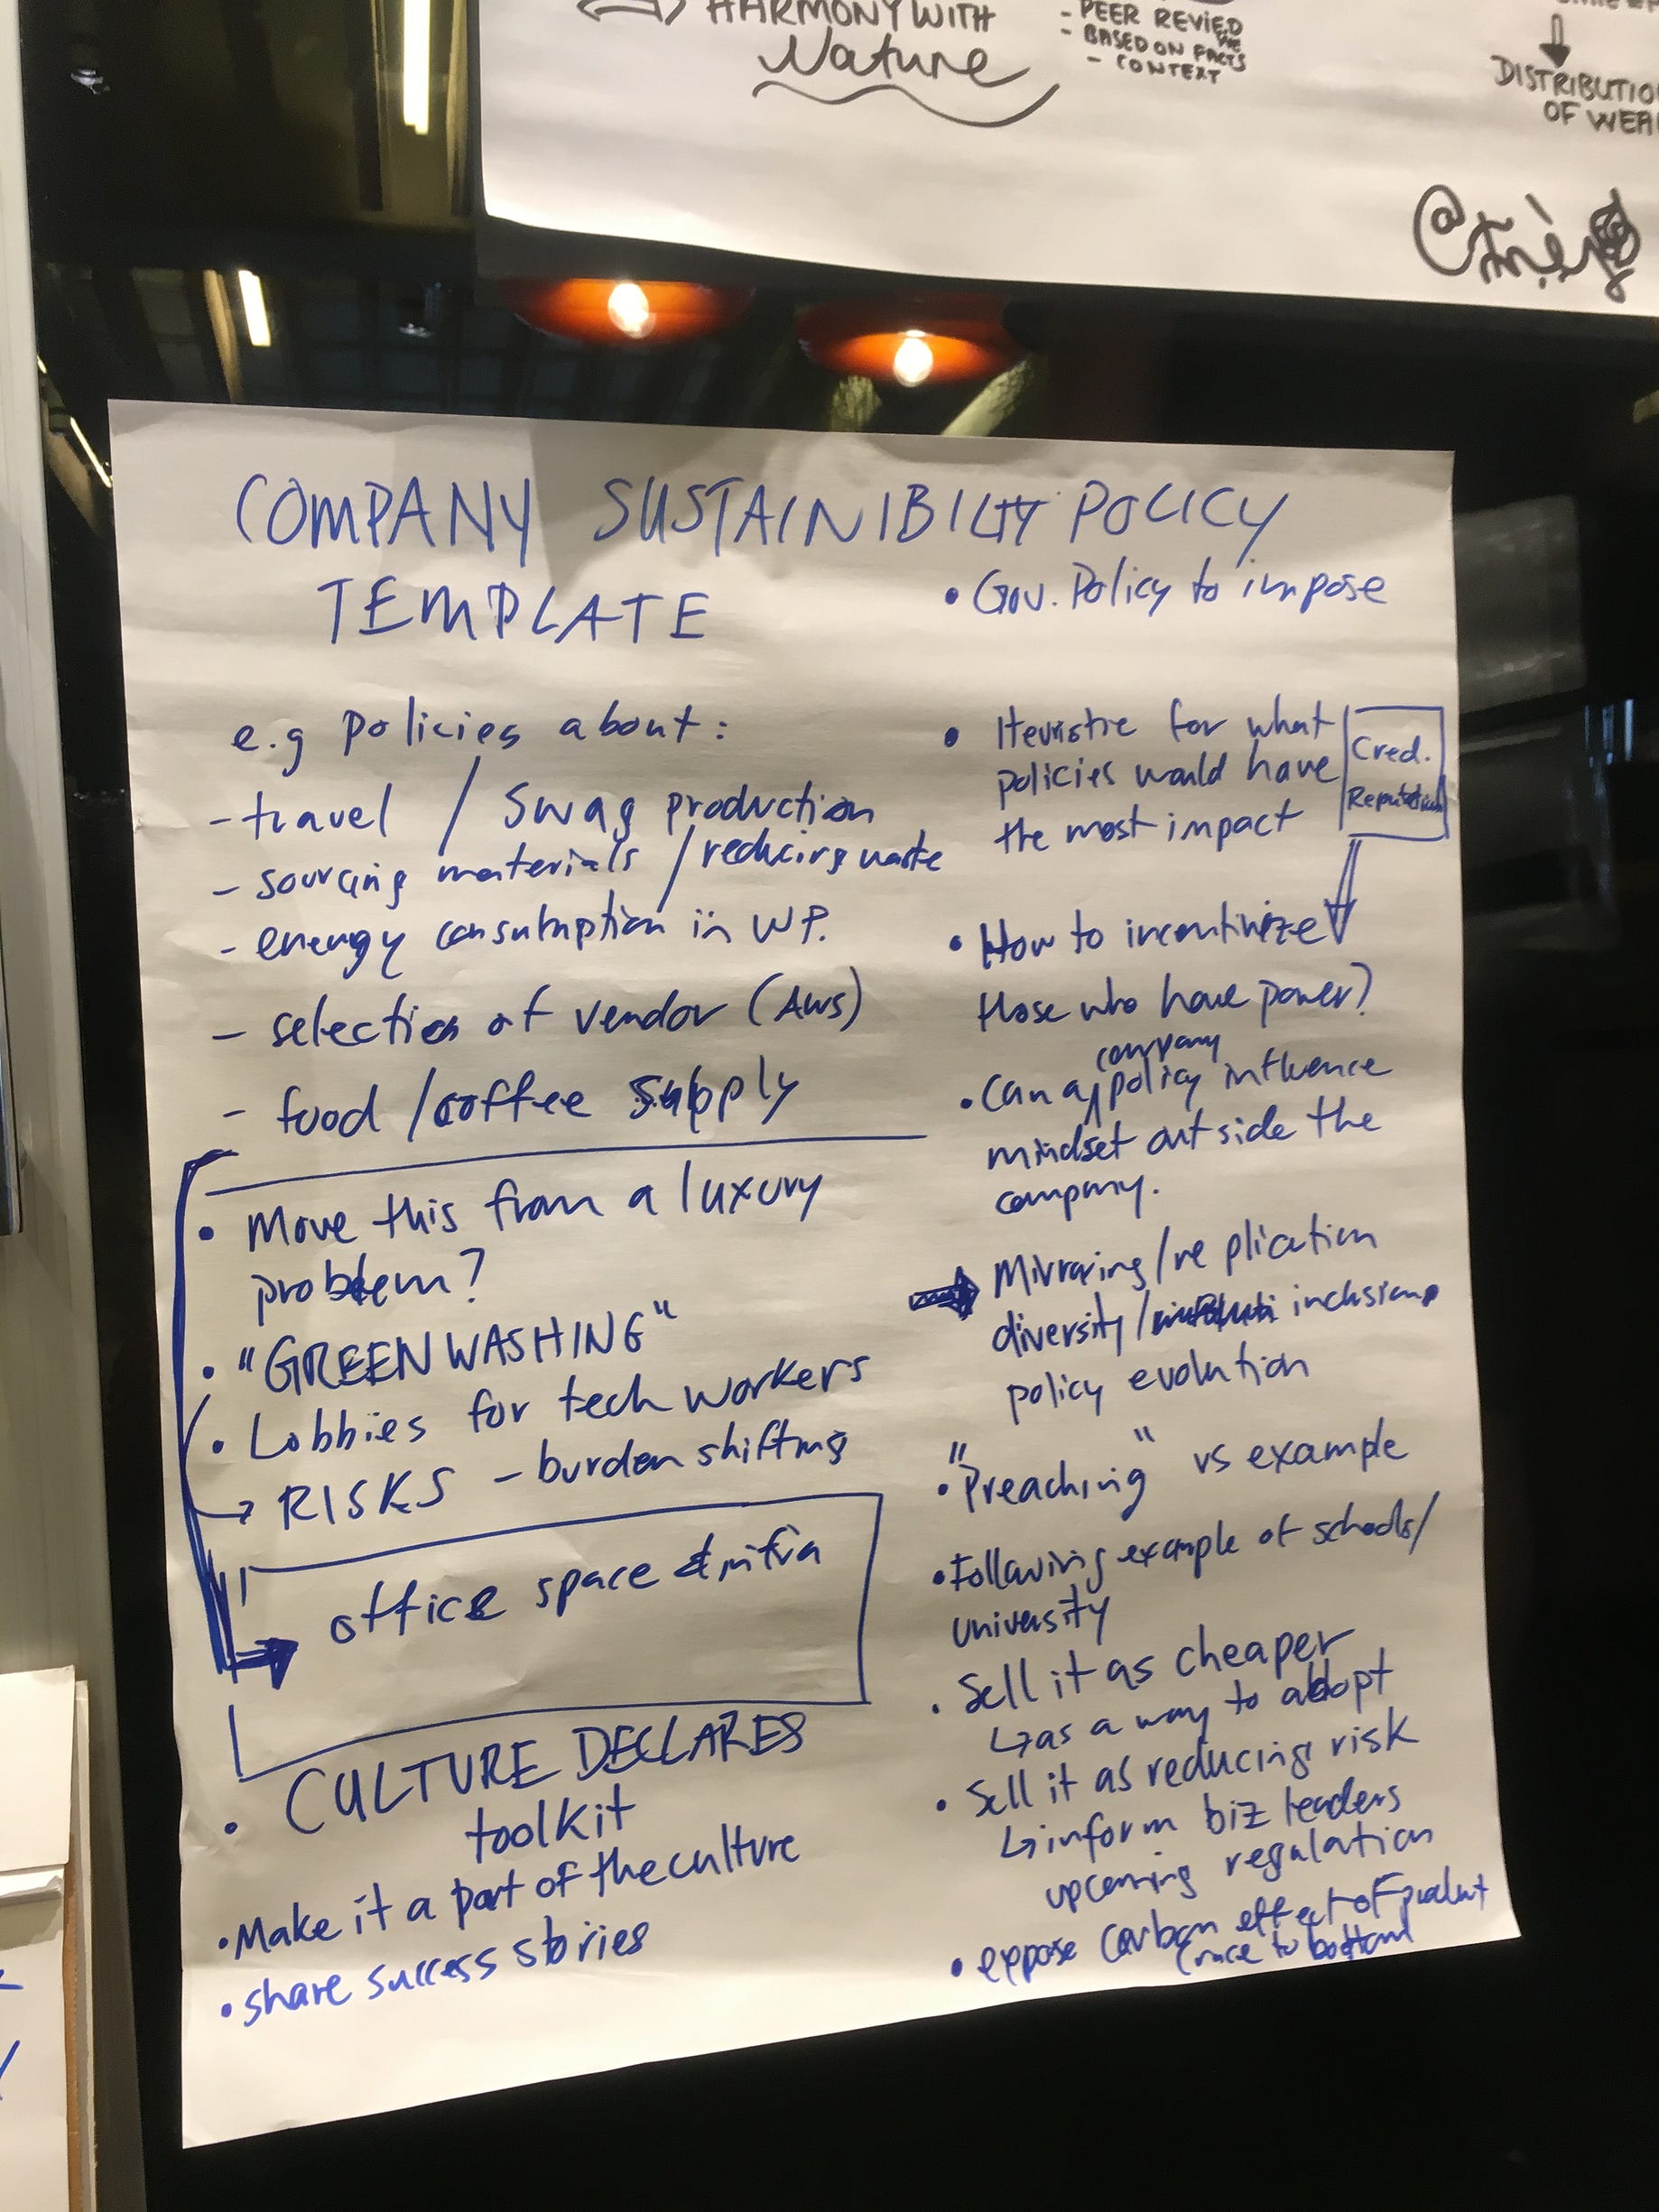 HARMONY WITH
Nature
- PEER REVIED
- BASED ON FACTS
- CONTEXT
DISTRIBUTIO
OF WEA
COMPANY SUSTAINIBILITY POLICY
TEMPLATE
e.g policies about:
- travel / Swag production
- sourcing materials / reducing waste
- energy consumption in WP.
- selection of vendor (AWS)
- food / coffee supply
• Move this from a luxury
problem?
• "GREENWASHING"
• Lobbies for tech workers
→ RISKS - burden shifting
office space & infra
• CULTURE DECLARES
toolkit
• Make it a part of the culture
• share success stories
• Gov. Policy to impose
• Heuristic for what
policies would have
the most impact
Cred.
Reputation
• How to incentivize
those who have power?
company
• Can a policy influence
mindset outside the
company.
→ Mirroring/replication
diversity/ inclusion
policy evolution
• "Preaching" vs example
• Following example of schools/
university
• Sell it as cheaper
↳ as a way to adopt
• Sell it as reducing risk
↳ inform biz leaders
upcoming regulation
• expose carbon effect of product
(race to bottom